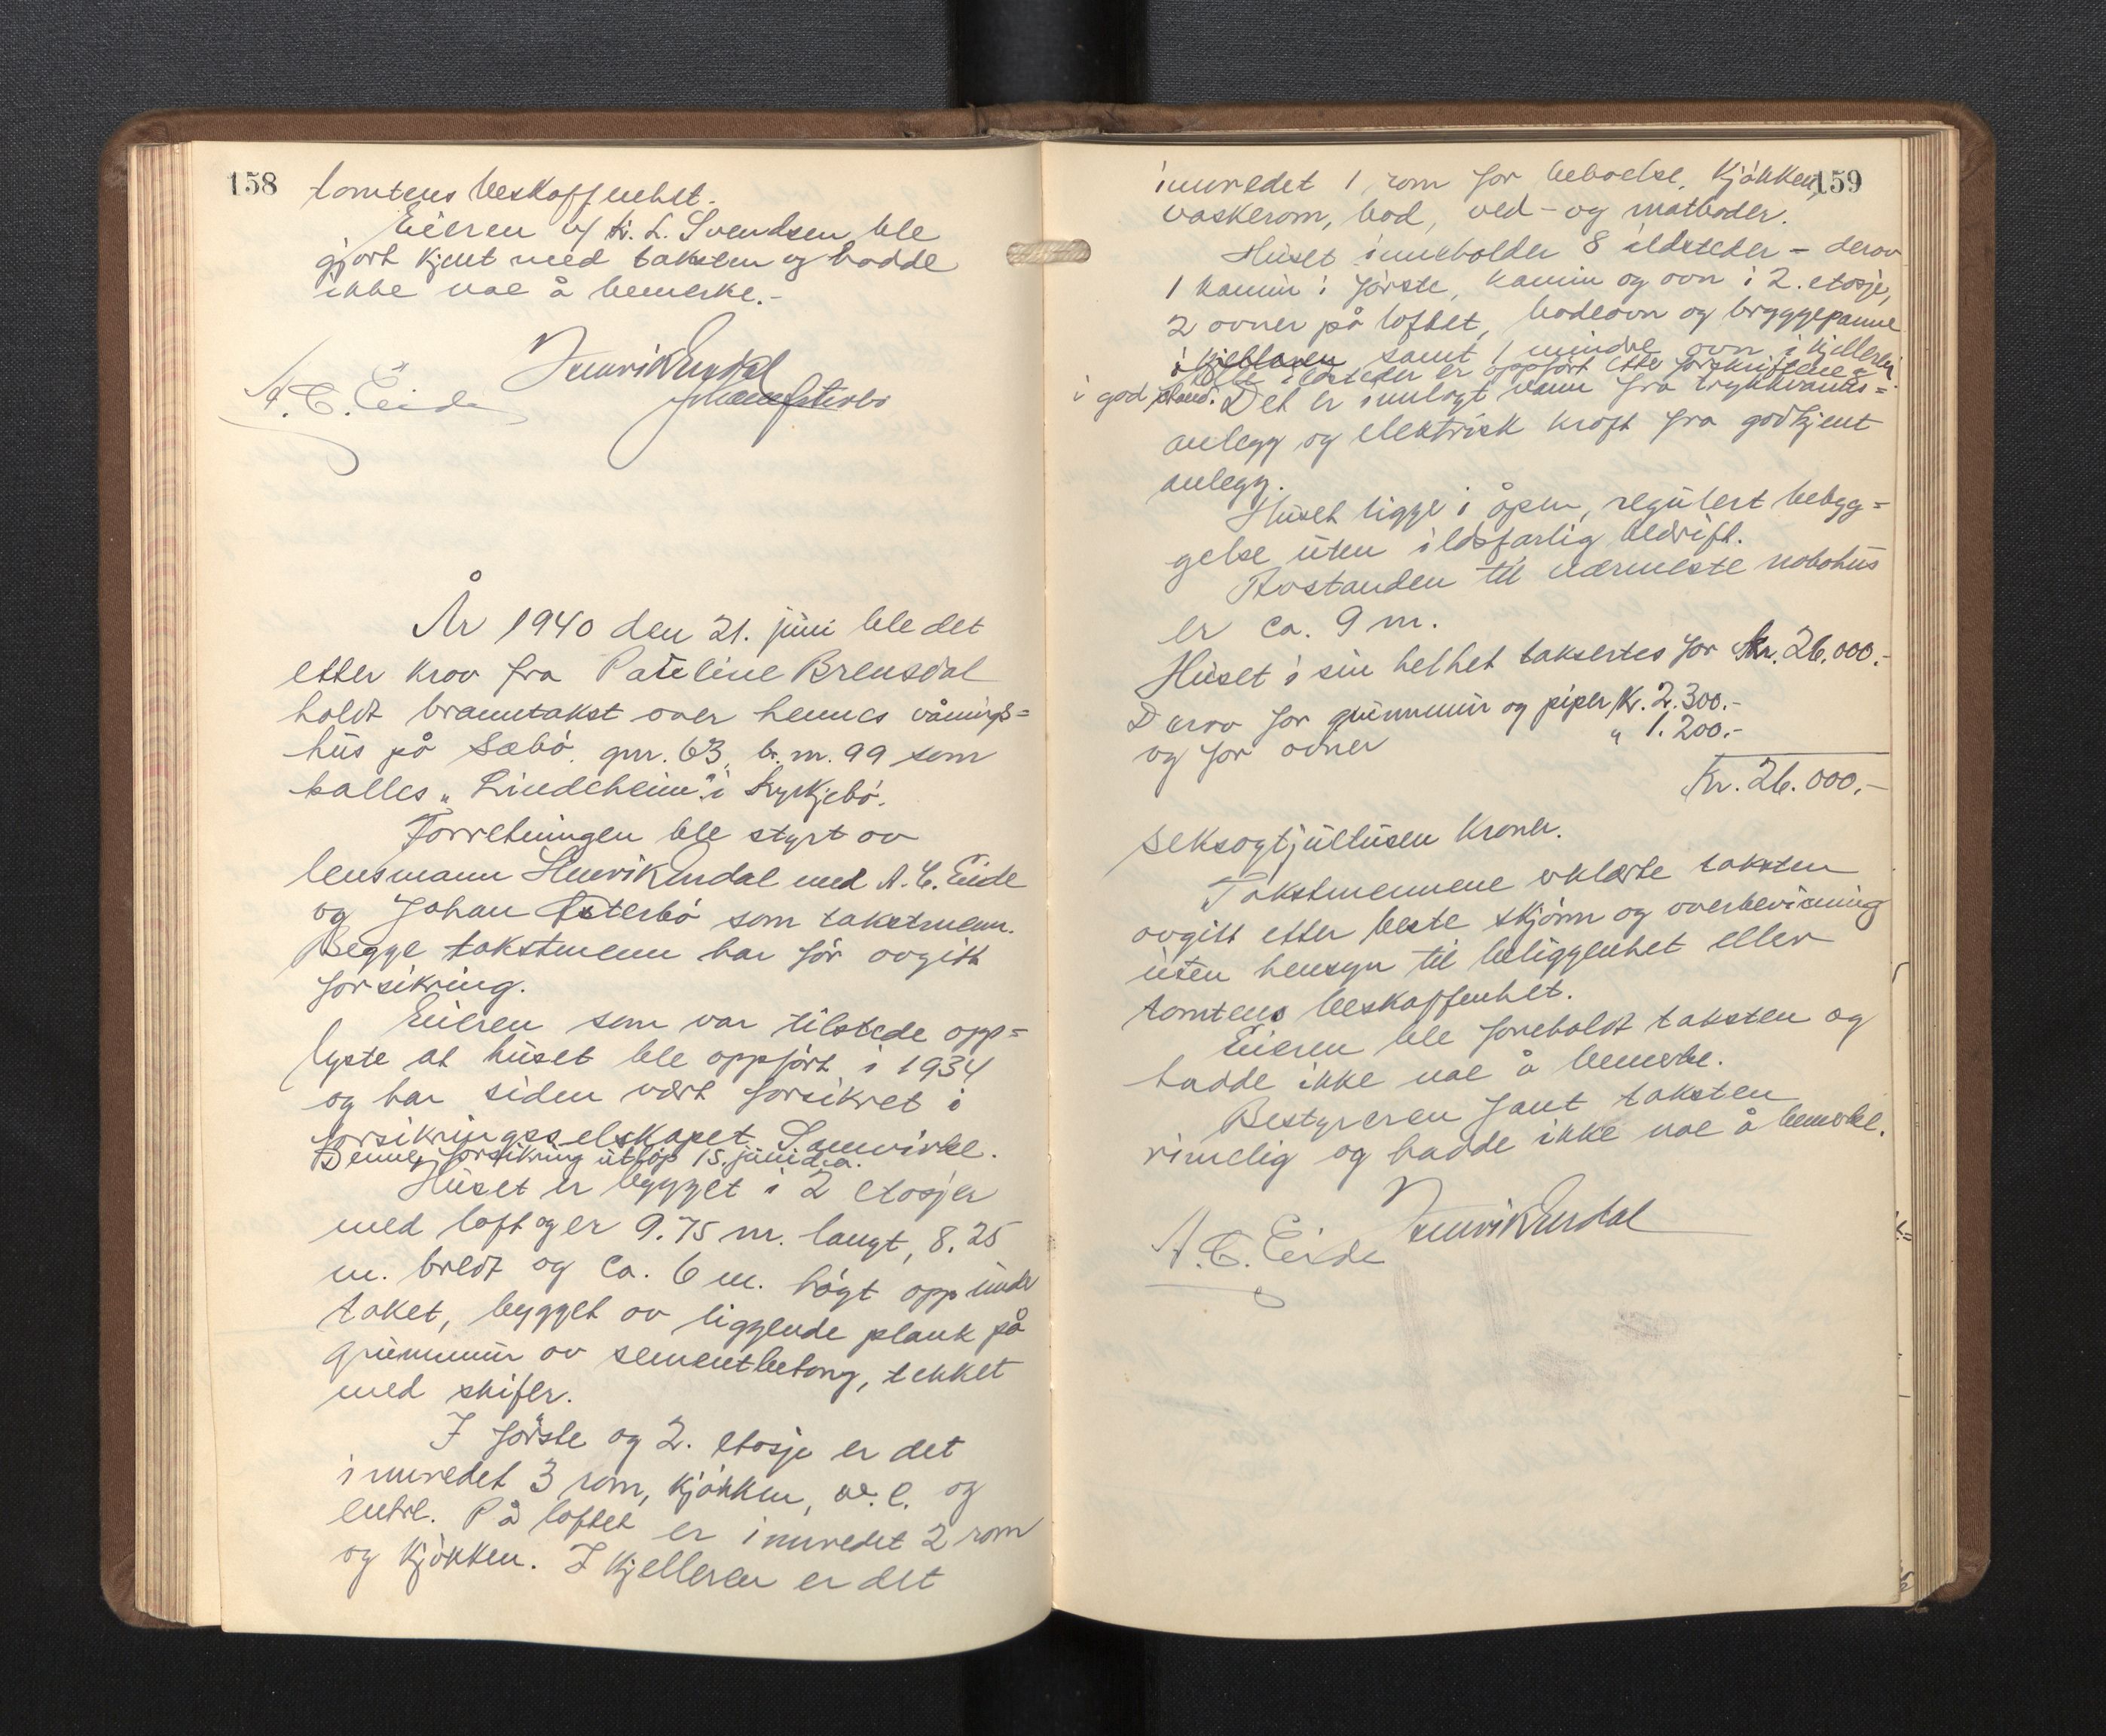 158
tomtens beskaffenhet.
Eieren v/ L. Svendsen ble
gjort kjent med taksten og hadde
ikke noe å bemerke.-
Henrik Endal
A. C. Eide
Johan Østerbø
År 1940 den 21. juni ble det
etter krav fra Pauline Brensdal
holdt branntakst over hennes vånings=
hus på Sæbø, gnr. 63, br. nr. 99 som
kalles "Lindeheim" i Kyrkjebø.
Forretningen ble styrt av
lensmann Henrik Endal med A. C. Eide
og Johan Østerbø som takstmenn.
Begge takstmenn har før avgitt
forsikring.
Eieren som var tilstede opp=
lyste at huset ble oppført i 1934
og har siden vært forsikret i
forsikringsselskapet Samvirke.
Denne forsikring utløp 15. juni d.a.
Huset er bygget i 2 etasjer
med loft og er 9.75 m. langt, 8.25
m. bredt og ca. 6 m. høgt opp under
taket, bygget av liggende plank på
grunnmur av sementbetong, tekket
med skifer.
I første og 2. etasje er det
innredet 3 rom, kjøkken, w.c. og
entre. På loftet er innredet 2 rom
og kjøkken. I kjelleren er det
159
innredet 1 rom for beboelse, kjøkken,
vaskerom, bod, ved- og matboder.
Huset inneholder 8 ildsteder - derav
1 kamin i første, kamin og ovn i 2. etasje,
2 ovner på loftet, badeovn og bryggepanne
i kjelleren samt 1 mindre ovn i kjelleren.
Alle ildsteder er oppført etter forskriftene =
i god stand. Det er innlagt vann fra trykkvanns=
anlegg og elektrisk kraft fra godkjent
anlegg.
Huset ligger i åpen, regulert bebyg=
gelse uten ildsfarlig bedrift.
Avstanden til nærmeste nabohus
er ca. 9 m.
Huset i sin helhet takseres for kr. 26.000.-
Derav for grunnmur og piper kr. 2.300.-
og for ovner " 1.200.-
Kr. 26.000.-
seksogtjuetusen kroner.
Takstmennene erklærte taksten
avgitt etter beste skjønn og overbevisning
uten hensyn til beliggenhet eller
tomtens beskaffenhet.
Eieren ble foreholdt taksten og
hadde ikke noe å bemerke.
Bestyreren fant taksten
rimelig og hadde ikke noe å bemerke.
Henrik Endal
A. C. Eide